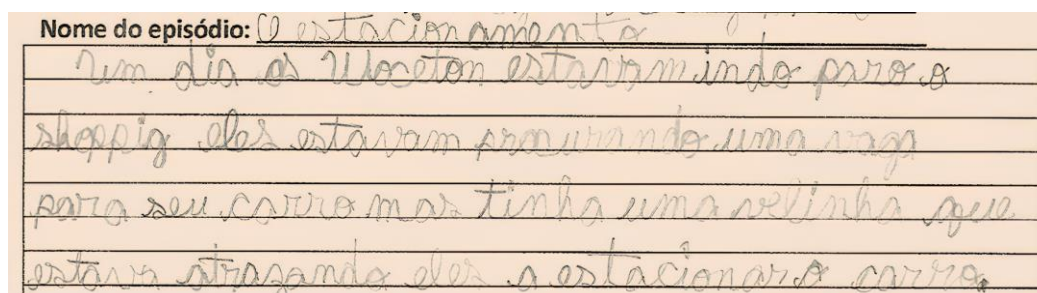 Nome do episódio: O estacionamento
um dia os Waeton estavam indo para o
shoppig eles estavam procurando uma vaga
para seu carro mas tinha uma velinha que
estava atrasando eles a estacionar o carro.